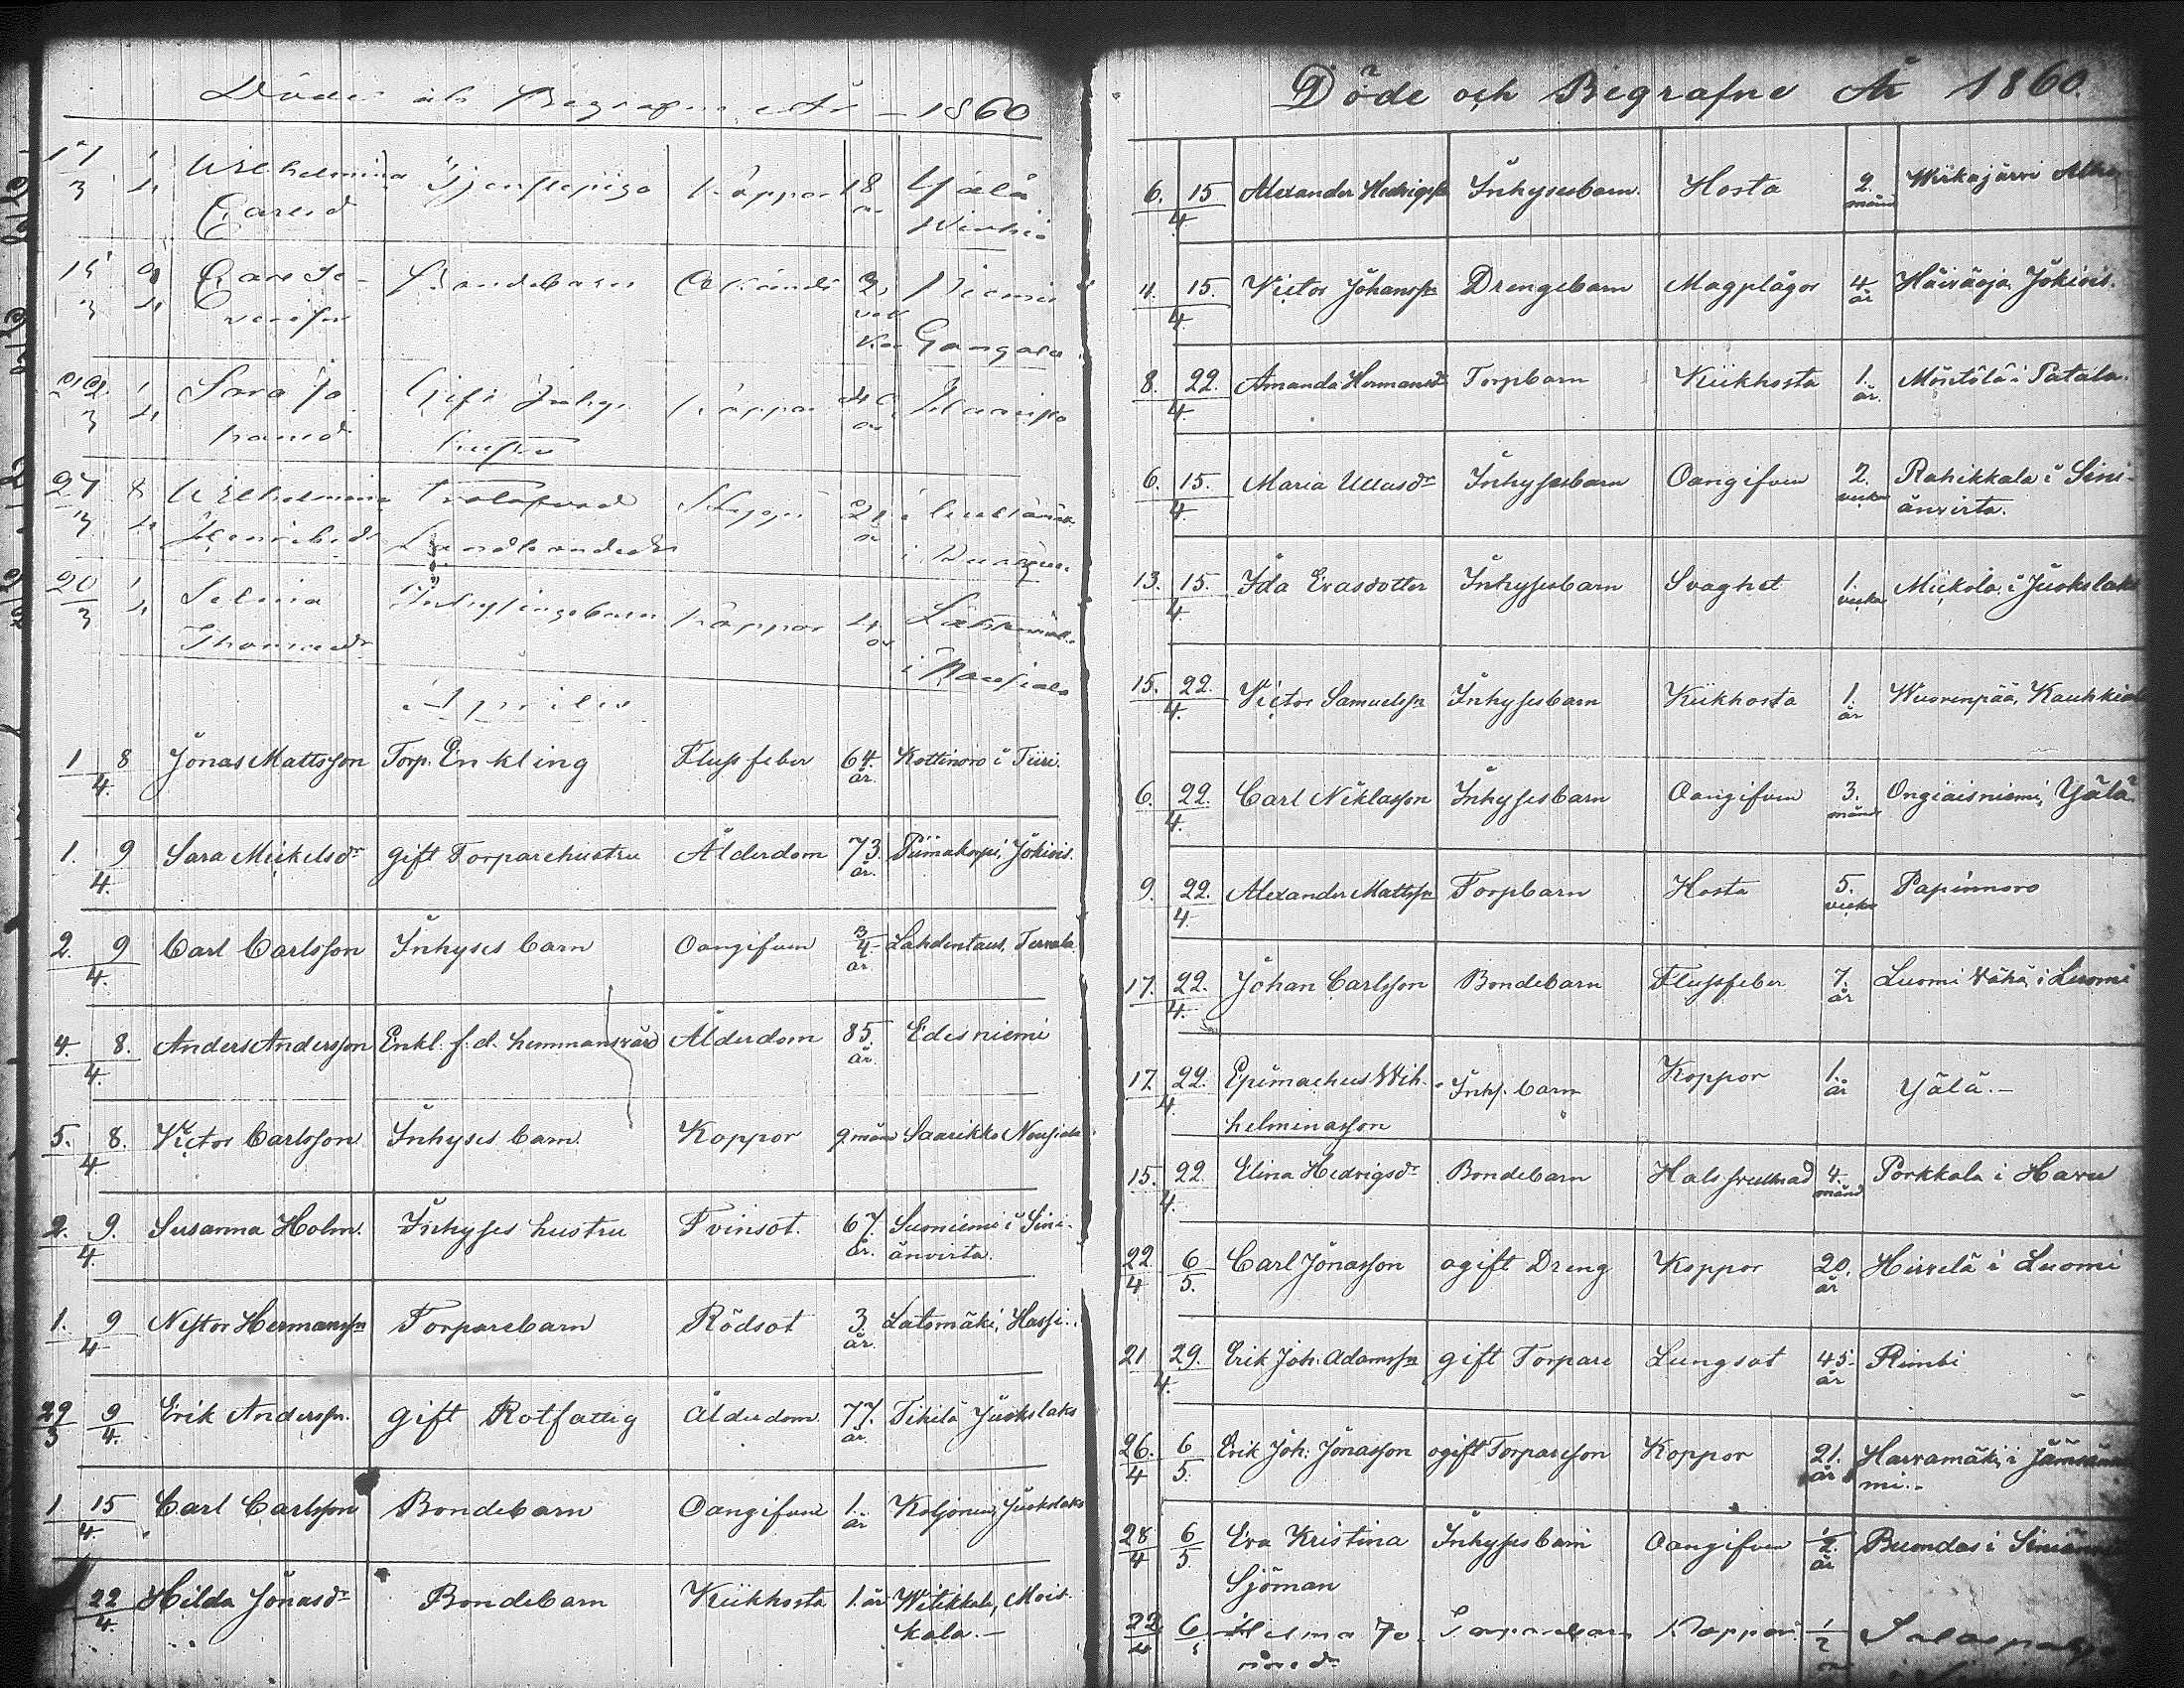 Döde och Begrafne År 1860
17/3 1/4 Wilhelmina Tjenstepiga Koppor 18 Yälä
Carlsd år
15/3 9/4 Bondebarn Okänd 2 Niemis
veckor Gangala
22/3 1/4 Sara Jo- Gift Inhys. Koppor 40
hansd hustru år
27/3 8/4 Wilhelmina 21
Henriksdr år i
20/3 1/4 Selma Inhysingsbarn Koppor 4
Thomasdr år i Nousiala
Aprilis
1 8/4 Jonas Mattsson Torp. Enkling Flussfeber 64 år Kottinoro i Tiiri.
1. 9/4 Sara Mickelsdr gift Torparehustru Ålderdom 73 år. Piimakorpi, Jokiois.
2. 9/4 Carl Carlsson Inhyses barn Oangifven 3/4 år Lahdentaus, Tervala
4. 8./4 Anders Andersson Enkl. f.d. hemmansvärd Ålderdom 85. år Edesniemi
5. 8./4 Victor Carlsson Inhyses barn Koppor 9 mån Saarikko Nousiala
2. 9./4 Susanna Holm. Inhyses hustru Tvinsot. 67. år. Suoniemi i Sini-
änvirta.
1. 9/4 Nestor Hermanssn Torparebarn Rödsot 3. år. Latomäki, Hassi.
29/3 9/4. Erik Anderssn. gift Rotfattig ålderdom 77. år. Tikilä Juokslaks
1 15/4. Carl Carlsson Bondebarn Oangifven 1. år Koljonen, Juokslaks
22/4. Hilda Jonasdr Bondebarn Kikhosta 1. år Witikkala, Mois-
kala.–
Döde och Begrafne År 1860.
6. 15/4. Alexander Hedrigssn Inhysesbarn. Hosta 2. månd Wirkajärvi
4. 15./4. Victor Johanssn Drengebarn Magplågor 4 år Häiväoja Jokiois.
8. 22./4. Amanda Hermansdr Torpbarn Kikhosta 1. år. Möntölä i Patala.
6. 15./4. Maria Ullasdr Inhysesbarn Oangifven 2. veckor Rahikkala i Sini-
änvirta.
13. 15./4. Ida Evasdotter Inhysesbarn Svaghet 1. vecka Mickola, i Juokslaks
15. 22./4. Victor Samuelssn Inhysesbarn Kikhosta 1. år Wuorenpää, Kauhkiala
6. 22./4. Carl Niklasson Inhysesbarn Oangifven 3. månd Ongiaisniemi, Yälä
9. 22./4. Alexander Mattssn Torpbarn Hosta 5. veckor Papinnoro
17. 22./4. Johan Carlsson Bondebarn Flussfeber 7. år Luomi Vähä, i Luomi
17. 22./4. Epimachus Wil- Inhs. barn Koppor 1. år Yälä.–
helminasson
15. 22/4. Elina Hedvigsdr Bondebarn Halssvullnad 4. månd Porkkala i Havu
22/4 6/5. Carl Jonasson ogift Dreng Koppor 20. år Hirvelä i Luomi
21 29./4. Erik Joh. Adamssn gift Torpare Lungsot 45. år Rimbi
26./4 6/5. Erik Joh. Jonasson ogift Torpareson Koppor 21. år Harvamäki, i Jämsänie-
mi.–
28/4 6/5. Eva Kristina Inhysesbarn Oangifven 1/2. år Bumdas i Siniänvirta
Sjöman
22/4 6/5 Helma Jo- Torparebarn Koppor. 1/2